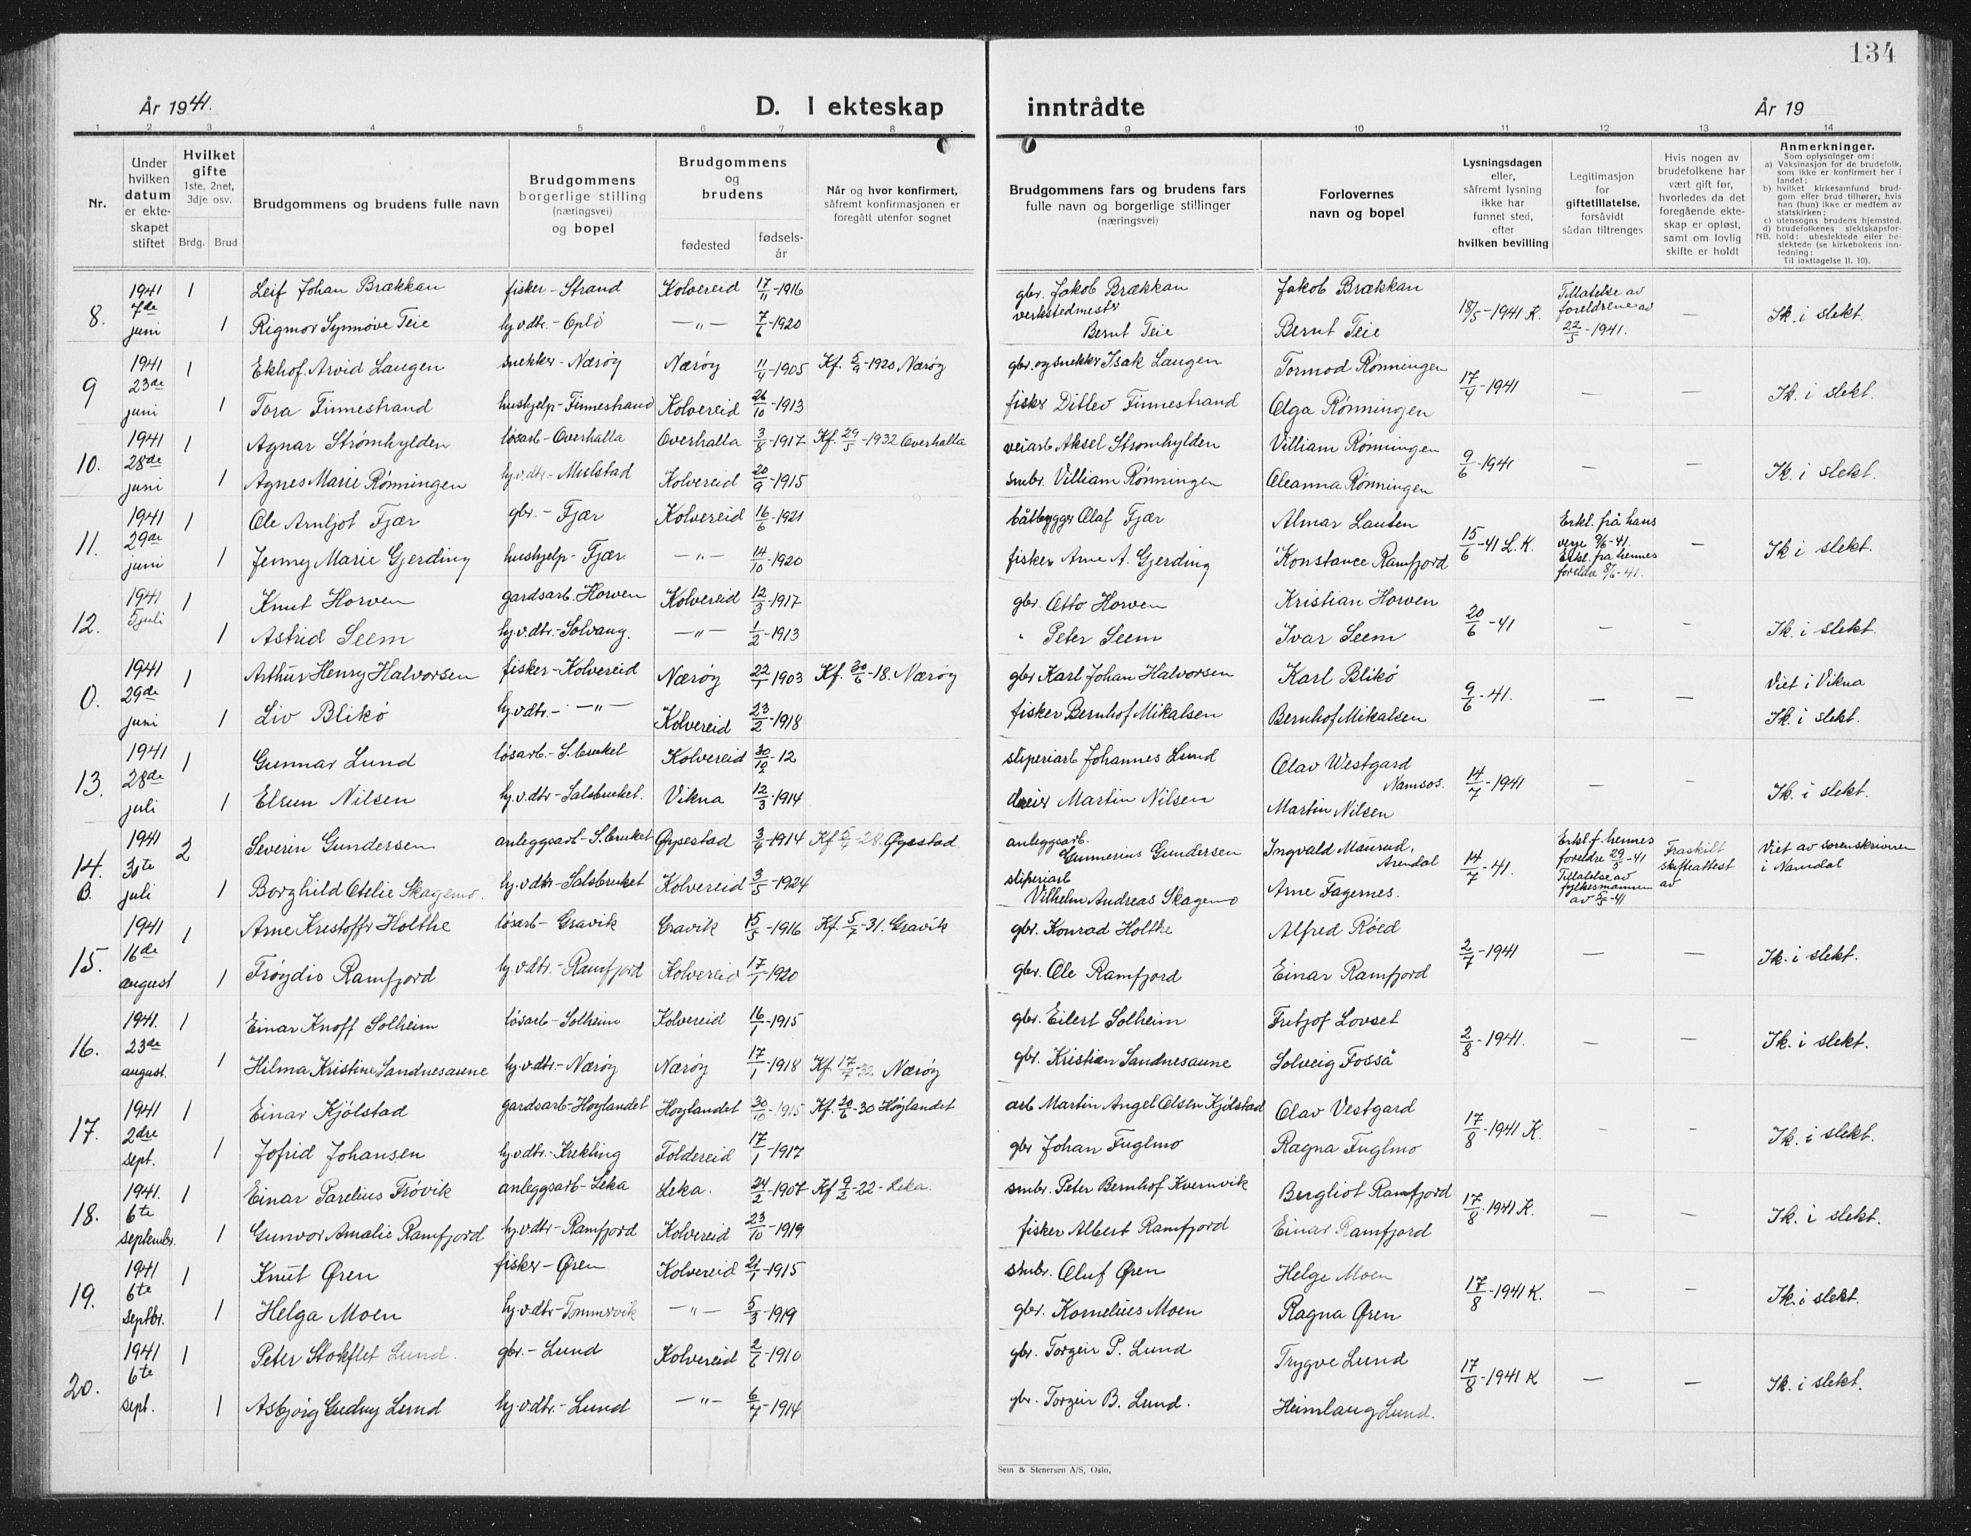 134
År 1941.
D. I ekteskap inntrådte
År 19
1 2 3 4 5 6 7 8 9 10 11 12 13 14
Nr.
Under hvilken datum er ekteskapet stiftet
Hvilket gifte 1ste, 2net, 3dje osv.
Brdg. Brud
Brudgommens og brudens fulle navn
Brudgommens borgerlige stilling (næringsvei) og bopel
Brudgommens og brudens
fødested
fødselsår
Når og hvor konfirmert, såfremt konfirmasjonen er foregått utenfor sognet
Brudgommens fars og brudens fars fulle navn og borgerlige stillinger (næringsvei)
Forlovernes navn og bopel
Lysningsdagen eller, såfremt lysning ikke har funnet sted, efter hvilken bevilling
Legitimasjon for giftetillatelse, forsåvidt sådan tiltrenges
Hvis nogen av brudefolkene har vært gift før, hvorledes da det foregående ekteskap er opløst, samt om lovlig skifte er holdt
Anmerkninger.
Som oplysninger om:
a) Vaksinasjon for de brudefolk, som ikke er konfirmert her i landet;
b) hvilket kirkesamfund brudgom eller brud tilhører, hvis han (hun) ikke er medlem av statskirken;
c) utensogns brudens hjemsted.
d) brudefolkenes slektskapsforhold: ubeslektede eller beslektede (se kirkebokens innledning:
NB. Til iakttagelse II. 10).
8. 1941 7de juni 1 Leif Johan Brækkan fisker - Strand Kolvereid 17/11-1916 gbr. Jakob Brækkan Jakob Brækkan 18/5-1941 K. Tillatelse av foreldrene av 22/5-1941. — Ik. i slekt.
1 Rigmor Synnøve Teie hj.v.dtr. - Oplø —"— 7/6-1920 verkstedmester Bernt Teie Bernt Teie
9 1941 23de juni 1 Ekhof. Arvid Laugen snekker - Nærøy Nærøy 11/4-1905 Kf. 5/9-1920 Nærøy gbr. og snekker Isak Laugen Tormod Rønningen 17/4-1941 — — Ik. i slekt.
1 Tora Finnestrand hushjelp - Finnestrand Kolvereid 26/10-1913 fisker Ditlev Finnestrand Olga Rønningen
10. 1941 28de juni 1 Agnar Strømhylden løsarb - Overhalla Overhalla 3/8-1917 Kf. 29/5-1932 Overhalla veiarb Aksel Strømhylden Villiam Rønningen 9/6-1941 — — Ik. i slekt.
1 Agnes Marie Rønningen hj.v.dtr. - Mulstad Kolvereid 20/9-1915 smbr. Villiam Rønningen Oleanna Rønningen
11. 1941 29de juni 1 Ole Arnljot Fjær gbr. - Fjær Kolvereid 16/6-1921 båtbygger Olaf Fjær Almar Lauten 15/6-41 L.K. Erkl. frå hans verje 9/6-41. Erkl. fra hennes foreldre 8/6-41. — Ik i slekt.
1 Jenny Marie Gjerding hushjelp - Fjær —"— 14/10-1920 fisker Arne A. Gjerding Konstance Ramfjord
12. 1941 5 juli 1 Knut Horven gardsarb. Horven Kolvereid 12/3-1917 gbr. Otto Horven Kristian Horven 20/6-41 — — Ik. i slekt.
1 Astrid Seem hj.v.dtr. - Solvang. —"— 1/2-1913 " Peter Seem Ivar Seem
0. 1941 29de juni 1 Arthur Henry Halvorsen fisker - Kolvereid Nærøy 22/1-1903 Kf. 30/6-18. Nærøy gbr Karl Johan Halvorsen Karl Blikø 9/6-41. — — Viet i Vikna
1 Liv Blikø hj.v.dtr. - —"— Kolvereid 23/2-1918 fisker Bernhof Mikalsen Bernhof Mikalsen Ik. i slekt.
13. 1941 28de juli 1 Gunnar Lund løsarb. - S.bruket Kolvereid 30/12-12 sliperiarb Johannes Lund Olav Westgard Namsos. 14/7-1941 — — Ik. i slekt.
1 Elsun Nilsen hj.v.dtr - Salsbruket. Vikna 12/3-1914 dreier Martin Nilsen Martin Nilsen
14. B. 1941 30te juli 2 Severin Gundersen anleggsarb - S.bruket Øyestad 3/6-1914 Øyestad anleggsarb. Gunnerius Gundersen Ingvald Maurud, Arendal 14/7-41. Erkl f. hennes foreldre 29/5-41 Tillatelse av fylkesmannen av Fraskilt skifteattest av Viet av sorenskriveren i Namdal
1 Borghild Otelie Skagemo. hj.v.dtr - Salsbruket Kolvereid 3/5-1924 sliperiarb Vilhelm Andreas Skagemo Arne Fagernes.
15. 1941 16de august 1 Arne Kristoffr Holthe løsarb - Gravik Gravik 15/5-1916 Kf. 5/7-31. Gravik gbr. Konrad Holthe Alfred Røed 2/7-1941 — — Ik. i slekt.
1 Frøydis Ramfjord hj.v.dtr. - Ramfjord Kolvereid 17/1-1920 gbr. Ole Ramfjord Einar Ramfjord
16. 1941. 23de august. 1 Einar Knoff Solheim løsarb - Solheim Kolvereid 16/1-1915 gbr. Eilert Solheim Fritjof Lovset 2/8-1941. — — Ik. i slekt.
1 Hilma Kristine Sandnesaune hj.v.dtr. - Nærøy Nærøy 17/1-1918 Kf. 17/7-32 Nærøy gbr. Kristian Sandnesaune Solveig Fosså
17. 1941 2dre sept. 1 Einar Kjølstad gardsarb - Høylandet Høylandet 30/10-1915 Kf. 20/6-30 Høylandet arb Martin Angel Olsen Kjølstad Olav Vestgard 17/8-1941 K. — — Ik. i slekt.
1 Jofrid Johansen hj.v.dtr. - Krekling Foldereid 17/1-1917 gbr Johan Fuglmo Ragna Fuglmo
18. 1941. 6te septembr. 1 Einar Parelius Frøvik anleggsarb - Leka Leka. 24/2-1907 Kf 9/2-22 - Leka. smbr. Peter Bernhof Kvernvik Bergliot Ramfjord 17/8-1941 K. — — Ik. i slekt.
1 Gunvor Amalie Ramfjord hj.v.dtr - Ramfjord Kolvereid 23/10-1919 fisker Albert Ramfjord Einar Ramfjord
19. 1941 6te septbr. 1 Knut Øren fisker - Øren Kolvereid 21/1-1915 smbr. Oluf Øren Helge Moen 17/8-1941 K. — — Ik. i slekt.
1 Helga Moen hj.v.dtr - Tommsvik —"— 5/3-1919 gbr. Kornelius Moen Ragna Øren
20. 1941 6te sept. 1 Peter Stokflet Lund. gbr. - Lund Kolvereid 2/6-1910 gbr. Torgeir P. Lund Trygve Lund 17/8-1941 K — — Ik. i slekt.
1 Asbjørg Gudny Lund hj.v.dtr. - Lund —"— 6/7-1914 gbr. Torgeir B. Lund. Heimlaug Lund.
Sem & Stenersen A/S, Oslo.